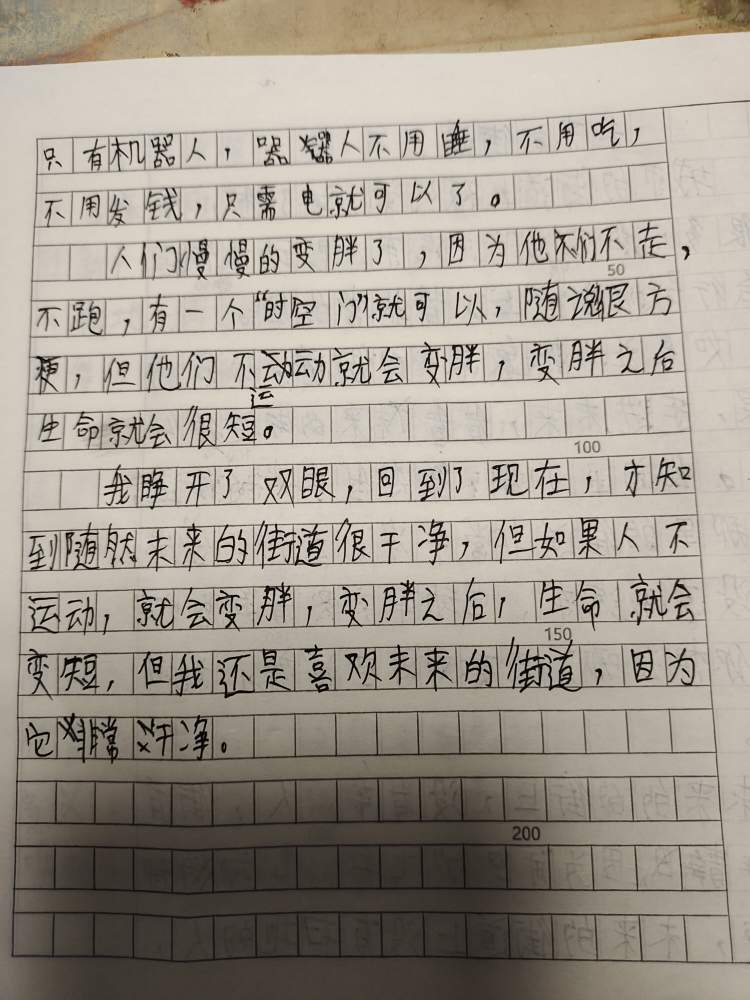 只有机器人，器器人不用睡，不用吃，
不用发钱，只需电就可以了。
人们慢慢的变胖了，因为他们不走，
50
不跑，有一个“时空门”就可以，随说很方
梗，但他们不运动就会变胖，变胖之后
生命就会很短。
100
我睁开了双眼，回到了现在，才知
到随然未来的街道很干净，但如果人不
运动，就会变胖，变胖之后，生命就会
150
变短，但我还是喜欢未来的街道，因为
它非常干净。
200